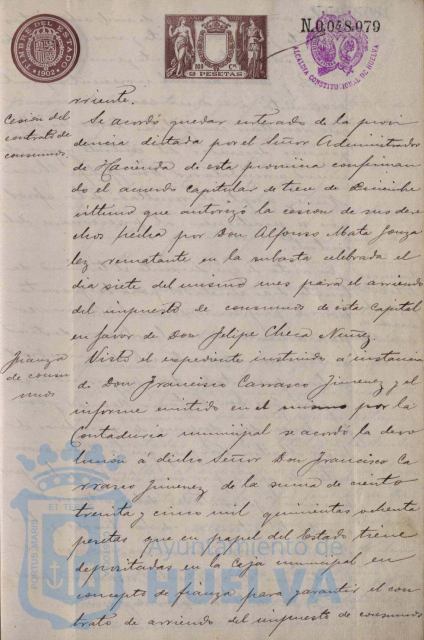 TIMBRE DEL ESTADO
1902
100 CM.
2 PESETAS
N.0.048.079
ALCALDIA CONSTITUCIONAL DE HUELVA
rriente.
Cesión del
contrato de
consumos
Se acordó quedar enterado de la provi
dencia dictada por el Señor Administrador
de Hacienda de esta provincia confirman
do el acuerdo capitular de trece de Diciembre
último que autorizó la cesion de sus dere
chos fecha por Don Alfonso Mata Gonza
lez rematante en la subasta celebrada el
dia siete del mismo mes para el arriendo
del impuesto de consumos de esta Capital
en favor de Don Felipe Checa Nuñez.
Fianza
de consu
mos
Visto el expediente instruido á instancia
de Don Francisco Carrasco Jimenez y el
informe emitido en el mismo por la
Contaduria municipal se acordó la devo
lucion á dicho Señor Don Francisco Ca
rrasco Jimenez de la suma de ciento
treinta y cinco mil quinientas ochenta
pesetas que en papel del Estado tiene
depositadas en la Caja municipal en
concepto de fianza para garantir el con
trato de arriendo del impuesto de consumos
PORTUS MARIS
ET TE
Ayuntamiento de
HUELVA